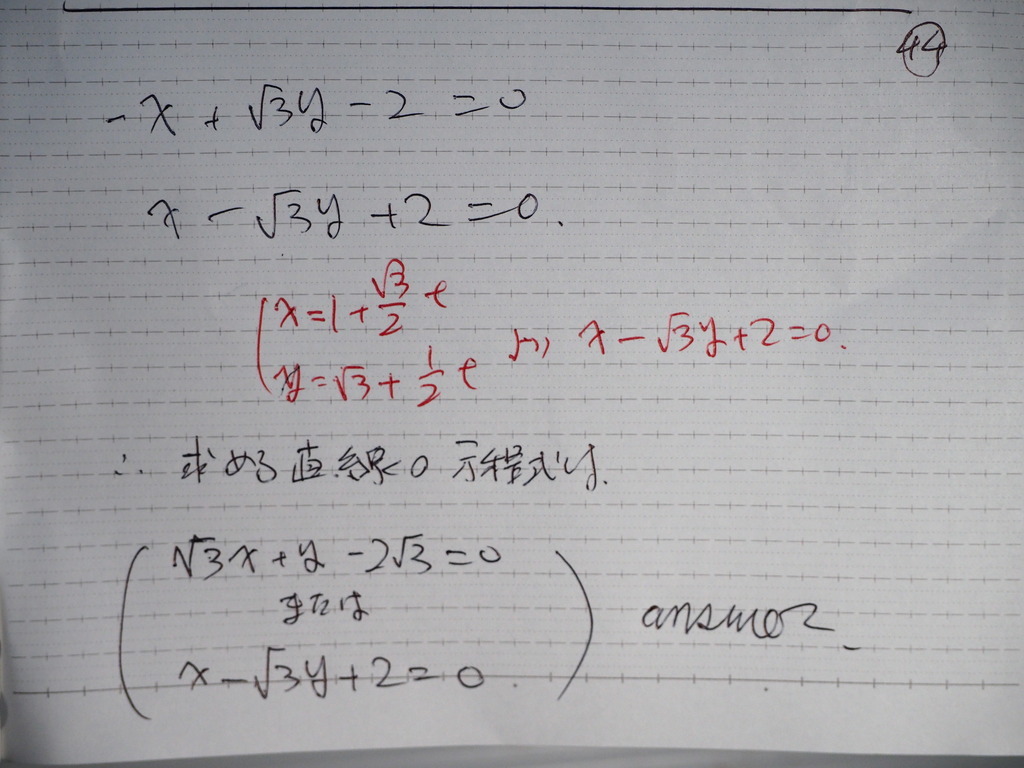 44
-x + √3y - 2 = 0
x - √3y + 2 = 0.
{x = 1 + √3/2 t
y = √3 + 1/2 t より x - √3y + 2 = 0.
∴ 求める直線の方程式は.
(√3x + y - 2√3 = 0
または
x - √3y + 2 = 0.) answer